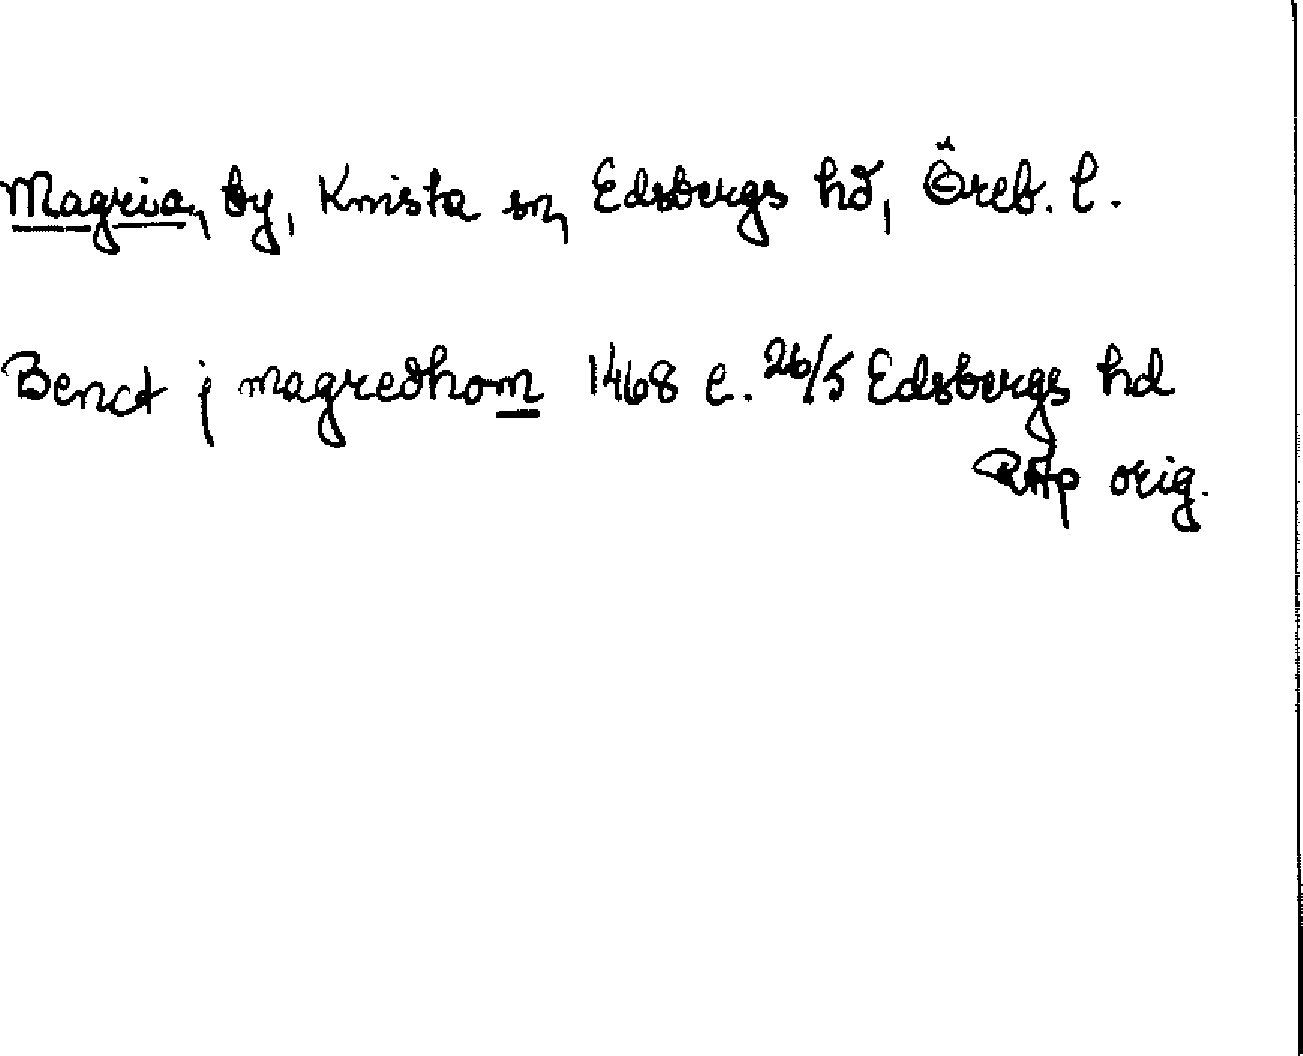 Magrea, by, Knista sn, Edsbergs hd, Öreb. l.
Benct j magredhom 1468 e. 26/5 Edsbergs hd
RAp orig.